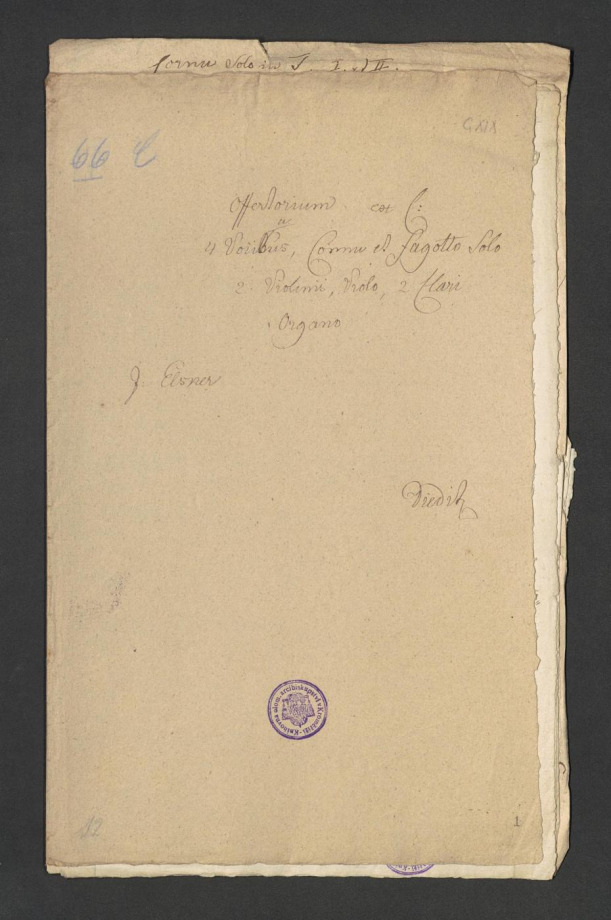 Cornu Solo in F. I. et II.
66 C
Offertorium ex C:
a
4 Vocibus, Cornu et Fagotto Solo
2 Violini, Viola, 2 Clari
Organo
J. Elsner
Knihovna olom. arcibiskupství v Kroměříži
12
1